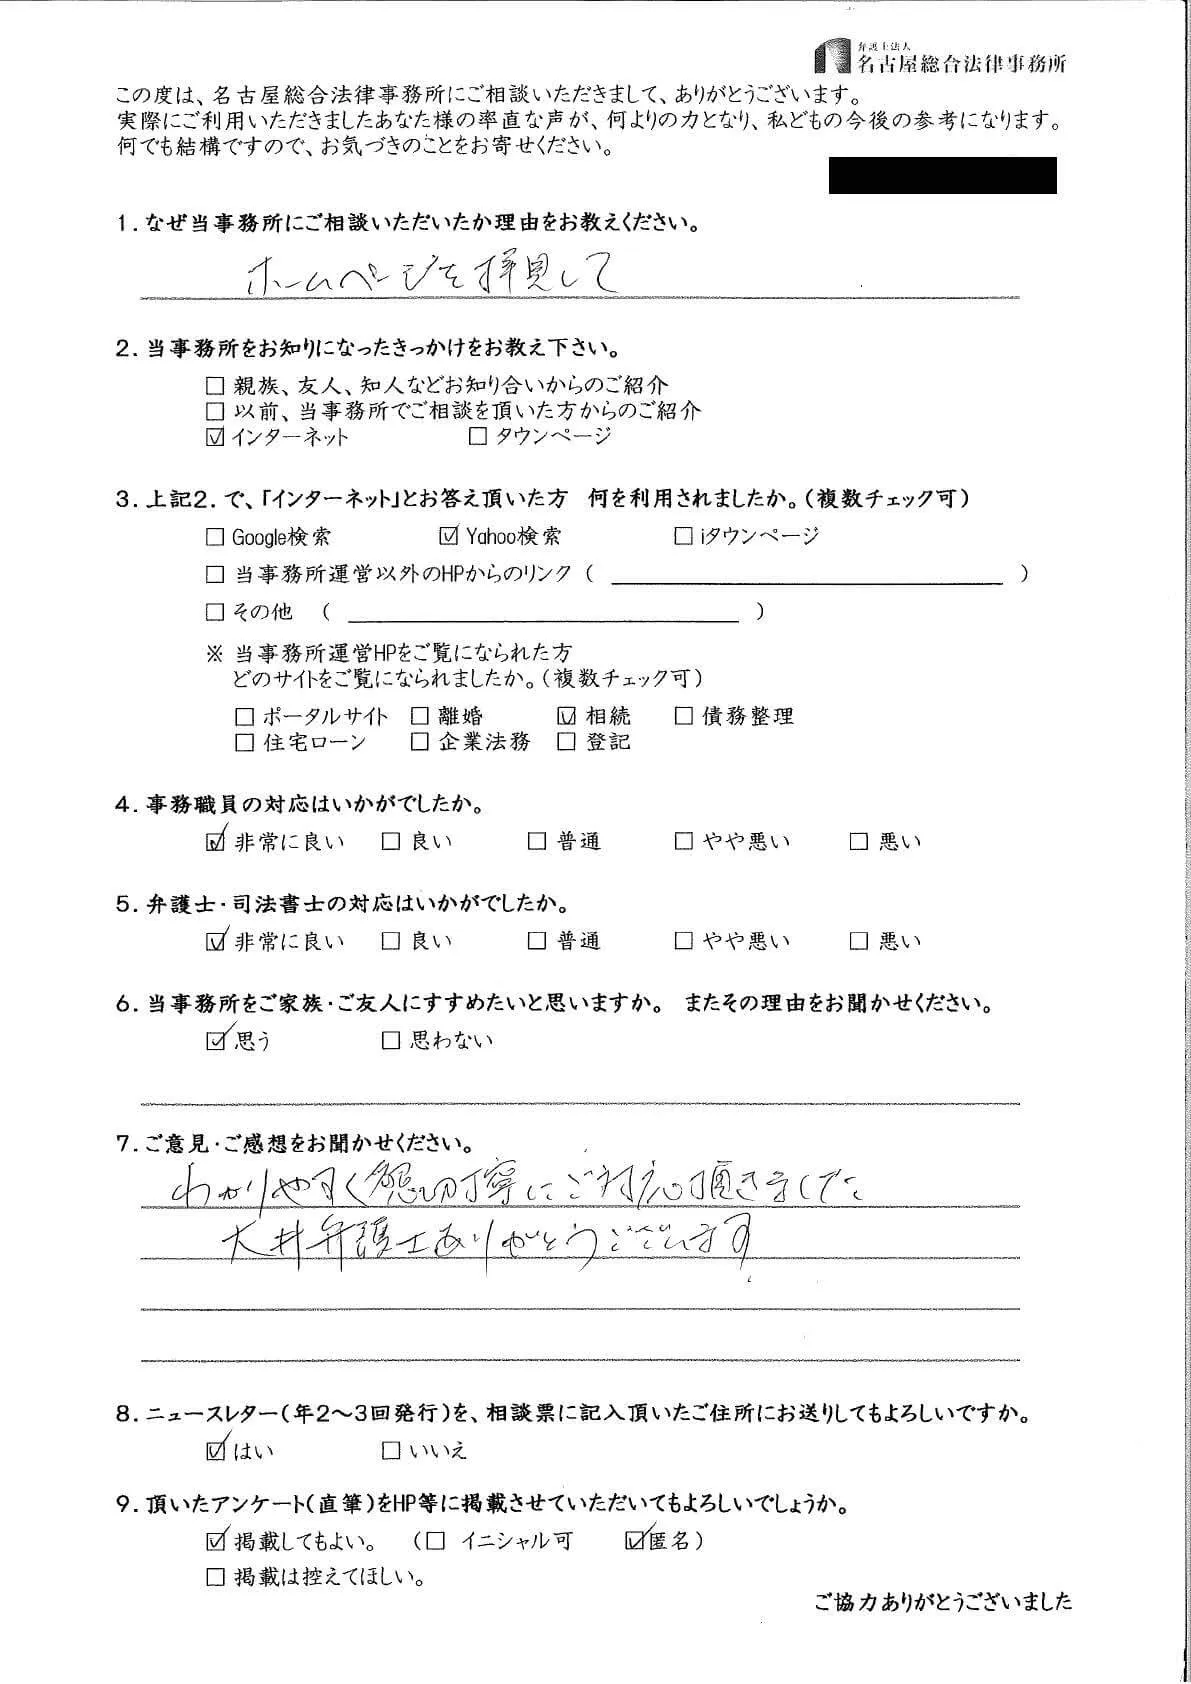 弁護士法人
名古屋総合法律事務所
この度は、名古屋総合法律事務所にご相談いただきまして、ありがとうございます。
実際にご利用いただきましたあなた様の率直な声が、何よりの力となり、私どもの今後の参考になります。
何でも結構ですので、お気づきのことをお寄せください。
1.なぜ当事務所にご相談いただいたか理由をお教えください。
ホームページを拝見して
2.当事務所をお知りになったきっかけをお教え下さい。
□ 親族、友人、知人などお知り合いからのご紹介
□ 以前、当事務所でご相談を頂いた方からのご紹介
☑ インターネット □ タウンページ
3.上記2.で、「インターネット」とお答え頂いた方 何を利用されましたか。(複数チェック可)
□ Google検索 ☑ Yahoo検索 □ iタウンページ
□ 当事務所運営以外のHPからのリンク ( )
□ その他 ( )
※ 当事務所運営HPをご覧になられた方
どのサイトをご覧になられましたか。(複数チェック可)
□ ポータルサイト □ 離婚 ☑ 相続 □ 債務整理
□ 住宅ローン □ 企業法務 □ 登記
4.事務職員の対応はいかがでしたか。
☑ 非常に良い □ 良い □ 普通 □ やや悪い □ 悪い
5.弁護士・司法書士の対応はいかがでしたか。
☑ 非常に良い □ 良い □ 普通 □ やや悪い □ 悪い
6.当事務所をご家族・ご友人にすすめたいと思いますか。 またその理由をお聞かせください。
☑ 思う □ 思わない
7.ご意見・ご感想をお聞かせください。
わかりやすく懇切丁寧にご対応頂きました
大井弁護士ありがとうございます
8.ニュースレター(年2〜3回発行)を、相談票に記入頂いたご住所にお送りしてもよろしいですか。
☑ はい □ いいえ
9.頂いたアンケート(直筆)をHP等に掲載させていただいてもよろしいでしょうか。
☑ 掲載してもよい。 (□ イニシャル可 ☑匿名)
□ 掲載は控えてほしい。
ご協力ありがとうございました